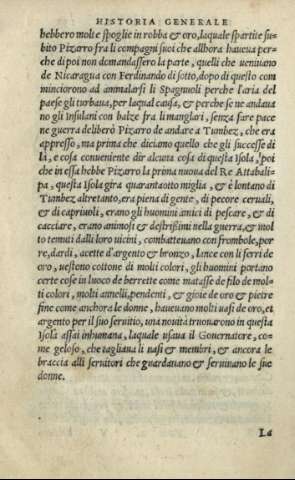 HISTORIA GENERALE
hebbero molte spoglie in robba & oro, laquale spartite su-
bito Pizarro fra li compagni suoi che allhora haueua per-
che di poi non domandassero la parte, quelli che ueniuano
de Nicaragua con Ferdinando di sotto, dopo di questo com
minciorono ad ammalarsi li Spagnuoli perche l'aria del
paese gli turbaua, per laqual causa, & perche se ne andaua
no gli Insulani con balze fra li manglari, senza fare pace
ne guerra deliberò Pizarro de andare a Tumbez, che era
appresso, ma prima che diciamo quello che gli successe di
là, è cosa conueniente dir alcuna cosa di questa Isola, poi
che in essa hebbe Pizarro la prima nuoua del Re Attabali-
pa, questa Isola gira quarantaotto miglia, & è lontano di
Tumbez altretanto, era piena di gente, di pecore ceruali,
& di capriuoli, erano gli huomini amici di pescare, & di
cacciare, erano animosi & destrissimi nella guerra, & mol
to temuti dalli loro uicini, combatteuano con frombole, por
re, dardi, acette d'argento & bronzo, lance con li ferri de
oro, uestono cottone di molti colori, gli huomini portano
certe cose in luoco de berrette come matasse de filo de mol-
ti colori, molti annelli, pendenti, & gioie de oro & pietre
fine come anchora le donne, haueuano molti uasi de oro, et
argento per il suo seruitio, una nouità truouarono in questa
Isola assai inhumana, laquale usaua il Gouernatore, co-
me geloso, che tagliaua li nasi & membri, & ancora le
braccia alli seruitori che guardauano & seruiuano le sue
donne.
La